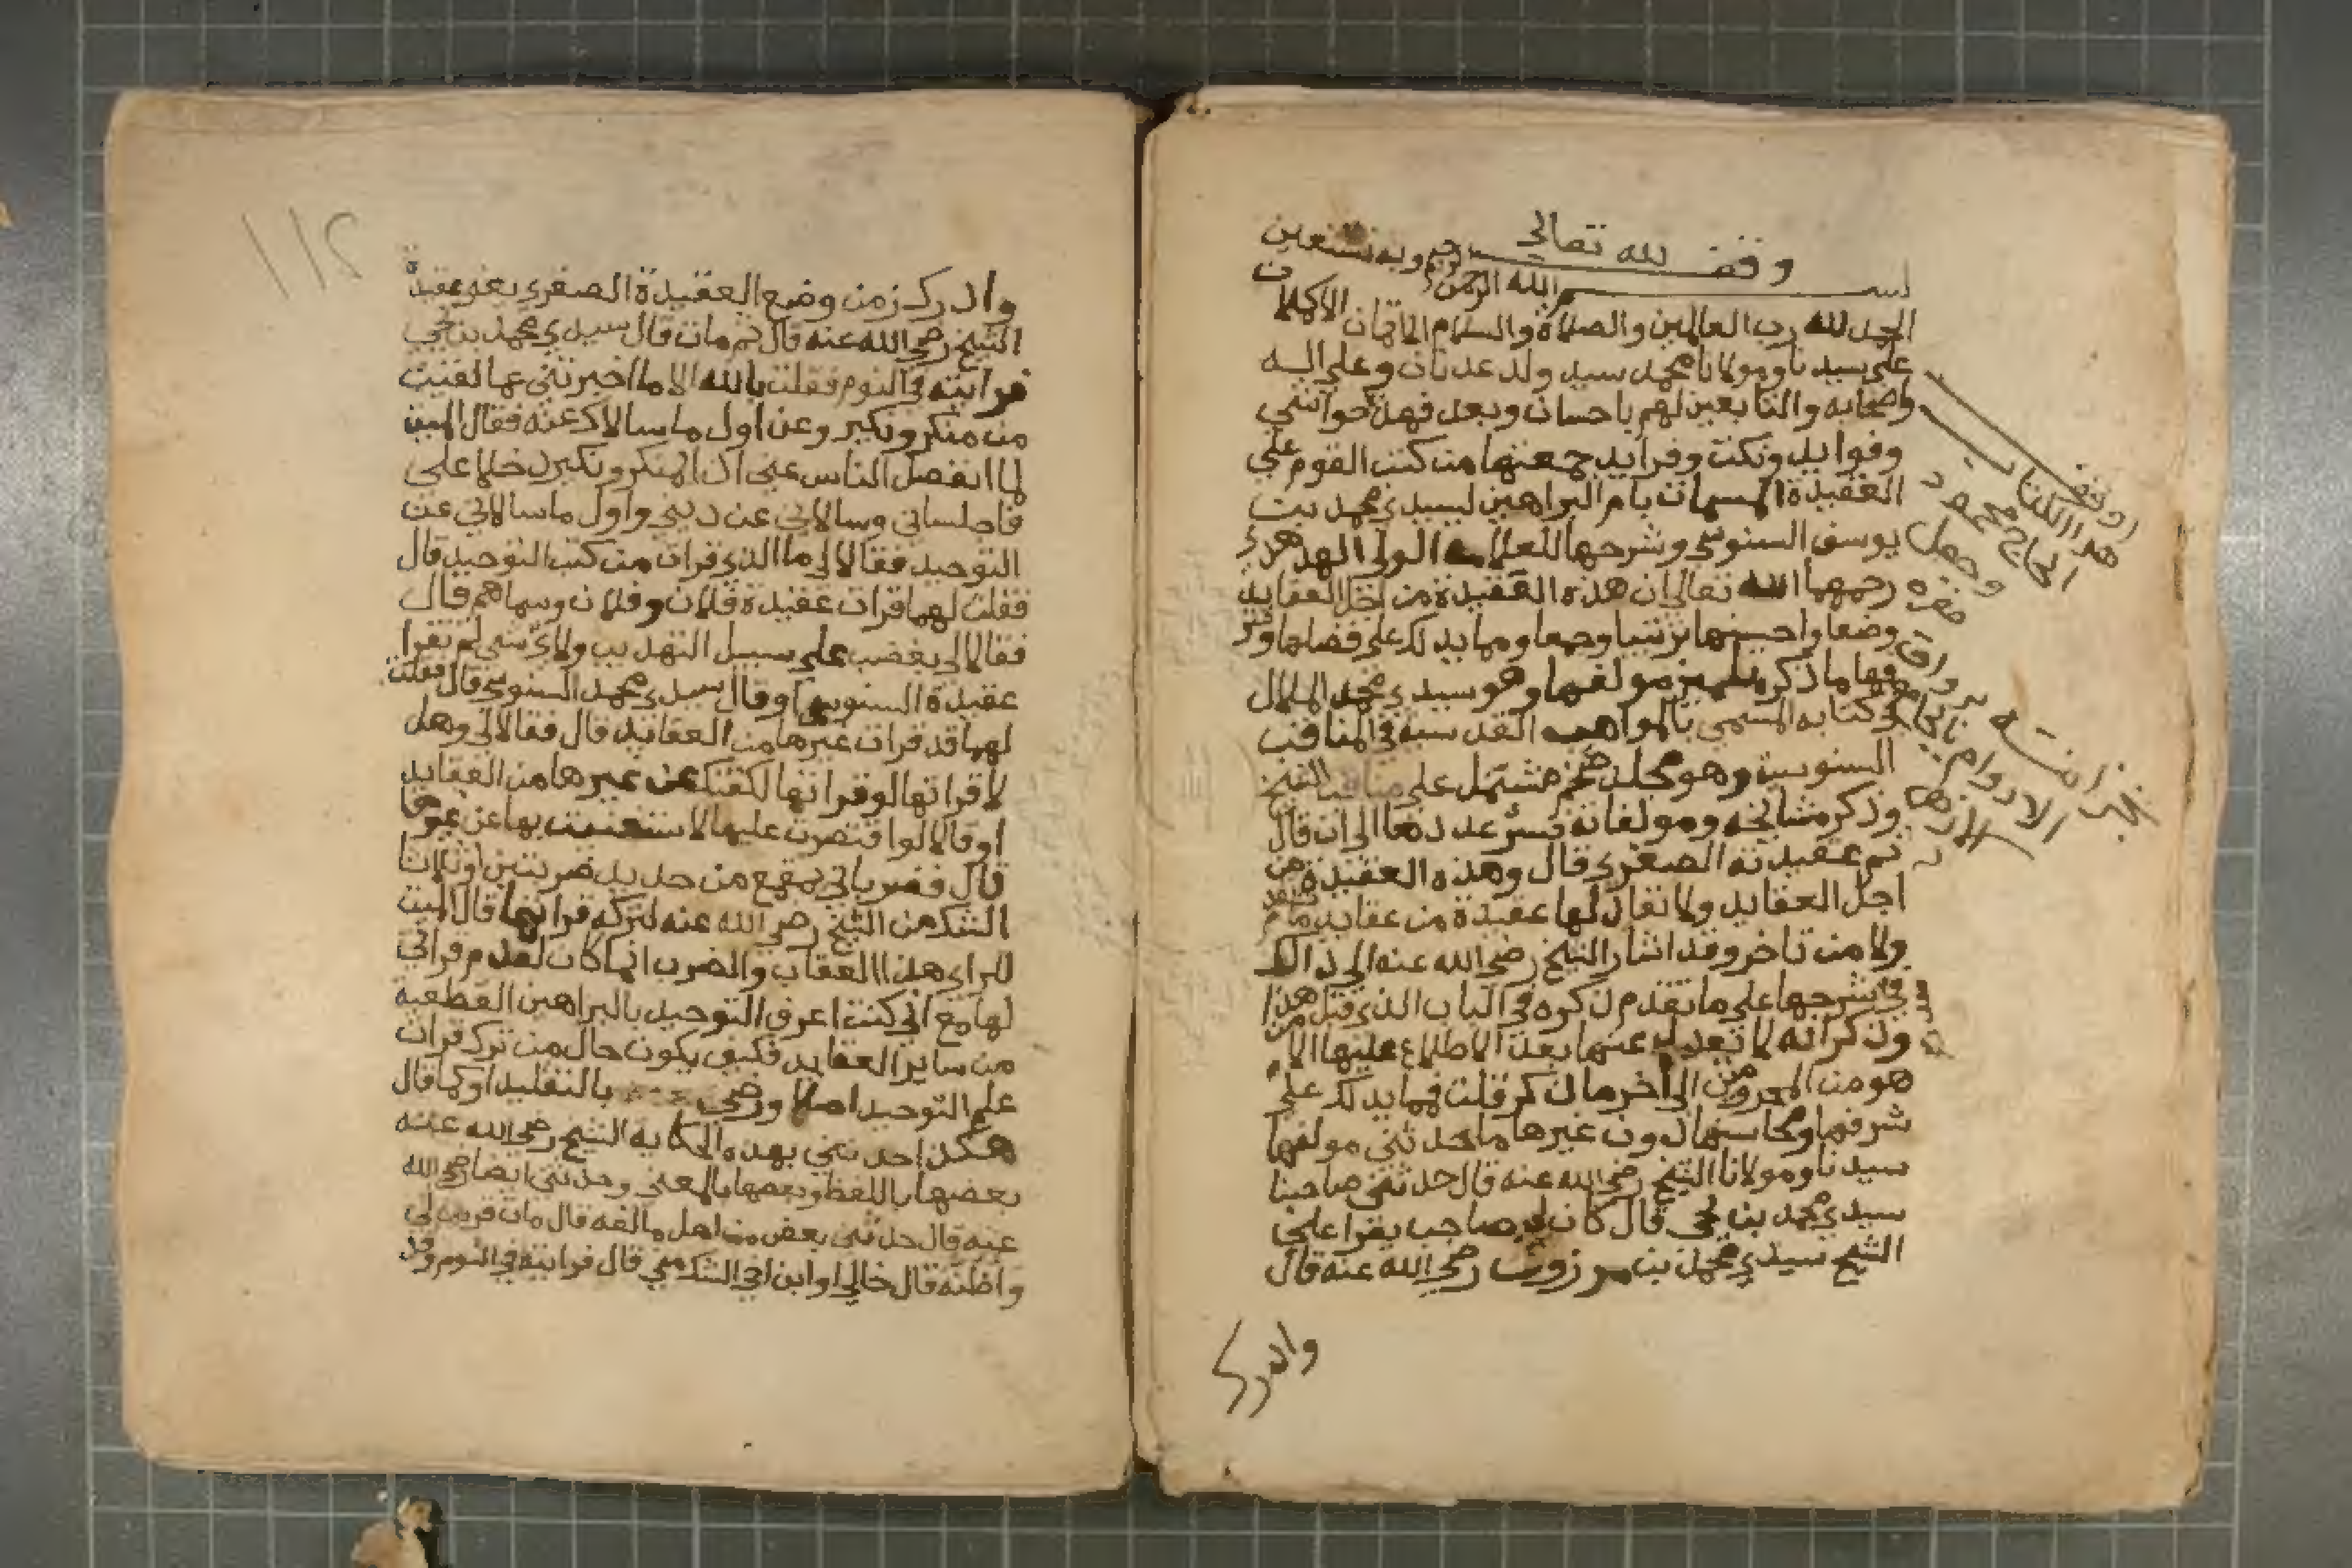 وقف لله تعالي
بسم الله الرحمن الرحيم وبه نستعين
الحمد لله رب العالمين والصلاة والسلام الاتمان الاكملان
علي سيدنا ومولانا محمد سيد ولد عدنان وعلي اله
واصحابه والتابعين لهم باحسان وبعد فهذه حواشي
وفوايد ونكت وفرايد جمعتها من كتب القوم علي
العقيدة المسمات بام البراهين لسيدي محمد بن
يوسف السنوسي وشرحها للعلامة الولي الهدهدي
رحمهما الله تعالي ان هذه العقيدة من اجل العقايد
وضعا واحسنها ترتيبا وجمعا ومما يدلك علي فضلها
ما ذكره تلميذ مولفها وهو سيدي محمد الملالي
في كتابه المسمي بالمواهب القدسية في المناقب
السنوسية وهو مجلد ضخم مشتمل علي مناقب الشيخ
وذكر مشايخه ومولفاته عددها الي ان قال
ثم عقيدته الصغري قال وهذه العقيدة من
اجل العقايد ولا تعادلها عقيدة من عقايد
ولا من تاخر وقد اشار الشيخ رضي الله عنه الي ذالك
في شرحها علي ما تقدم ذكره في الباب الذي قبل هذا
وذكر انه لا يعدل عنها بعد الاطلاع عليها الا من
هو من المحرومين الي اخر ما ذكر قلت فمما يدلك علي
شرفها ومحاسنها دون غيرها ما حدثني مولفها
سيدنا ومولانا الشيخ رضي الله عنه قال حدثني صاحبنا
سيدي محمد بن يحي قال كان لي صاحب يقرا علي
الشيخ سيدي محمد بن مرزوق رضي الله عنه قال
وادرك
هذا الكتاب
الحاج محمد
وجعل
مقره
برواق
١١٢
وادرك زمن وضع العقيدة الصغري يعني عقيدة
الشيخ رضي الله عنه قال ثم مات قال سيدي محمد بن يحي
فرايته في النوم فقلت بالله الا ما اخبرتني عما لقيت
من منكر ونكير وعن اول ما سالاك عنه فقال الميت
لما انفصل الناس عني اذ المنكر ونكير دخلا علي
فاجلساني وسالاني عن ديني واول ما سالاني عن
التوحيد فقالا لي ما الذي قرات من كتب التوحيد قال
فقلت لهما قرات عقيدة فلان وفلان وسماهم قال
فقالا لي بغضب علي سبيل التهديب ولاي شي لم تقرا
عقيدة السنوسي او قال سيدي محمد السنوسي قال فقلت
لهما قد قرات غيرها من العقايد قال فقالا لي وهل
لا قراتها لو قراتها لكفتك عن غيرها من العقايد
او قالا لو اقتصرت عليها لاستغنيت بها عن غيرها
قال فضرباني بمقمع من حديد ضربتين او ثلاثا
الشك من الشيخ رضي الله عنه لتركه قرايتها قال الميت
للراي هذا العقاب والضرب انما كان لعدم قراتي
لها مع اني كنت اعرف التوحيد بالبراهين القطعية
من ساير العقايد فكيف يكون حال من ترك قرات
علم التوحيد اصلا ورضي بالتقليد او كما قال
هكذا حدثني بهذه الحكاية الشيخ رضي الله عنه
بعضها باللفظ وبعضها بالمعني وحدثني ايضا رضي الله
عنه قال حدثني بعض من اهل مالقه قال مات قريب لي
واظنه قال خالي او ابن اخي الشك مني قال فرايته في النوم وقد